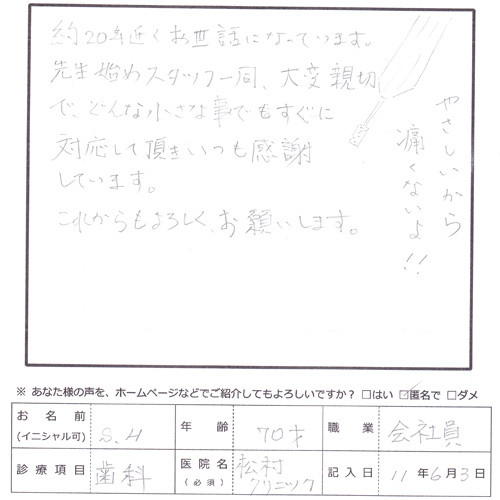 約20年近くお世話になっています。
先生始めスタッフ一同、大変親切
で、どんな小さな事でもすぐに
対応して頂きいつも感謝
しています。
これからもよろしく、お願いします。
やさしいから
痛くないよ!!
※ あなた様の声を、ホームページなどでご紹介してもよろしいですか? □はい ☑匿名で □ダメ
お名前
(イニシャル可)
S.H
年齢
70才
職業
会社員
診療項目
歯科
医院名
(必須)
松村
クリニック
記入日
11年6月3日